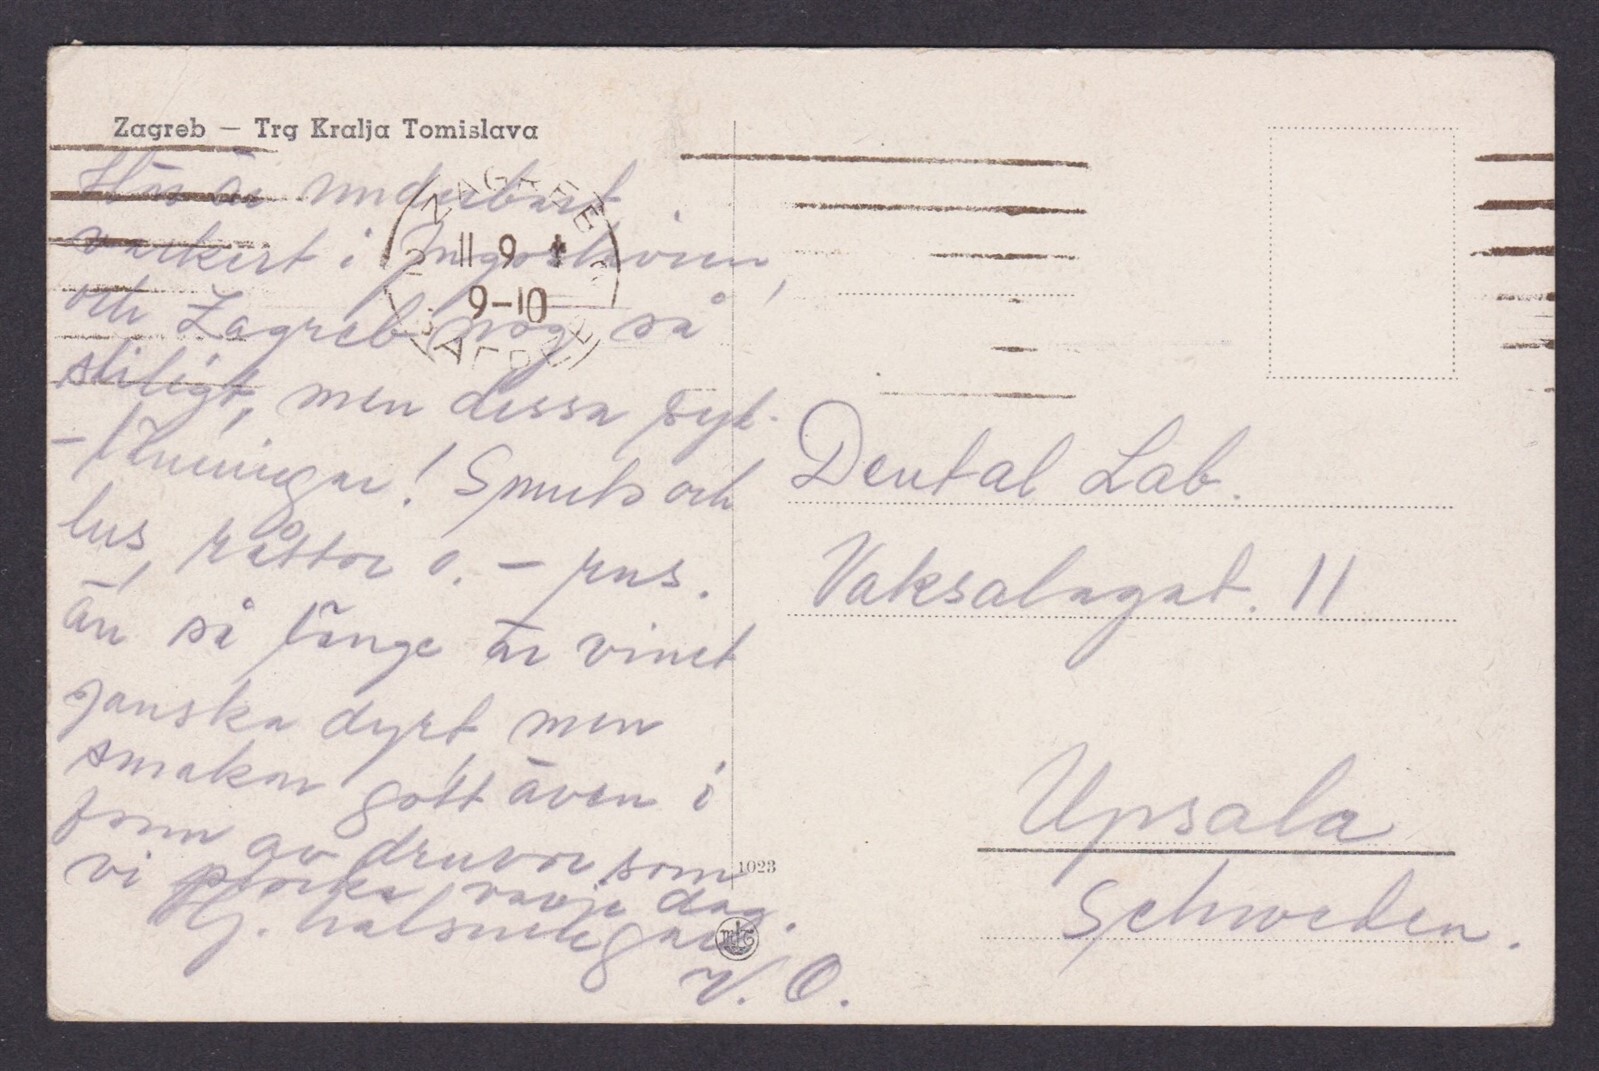 Zagreb — Trg Kralja Tomislava
Här är underbart
vackert i Jugoslavien,
och Zagreb nog så
stiligt, men dessa
! Smuts och
lus, råttor o. – rus.
än så länge är vinet
ganska dyrt, men
smakar gott även i
form av druvor som
vi plocka varje dag.
Hj. hälsningar
V. O.
ZAGREB
11 9
9–10
Dental Lab.
Vaksalagat. 11
Upsala
Schweden.
1023